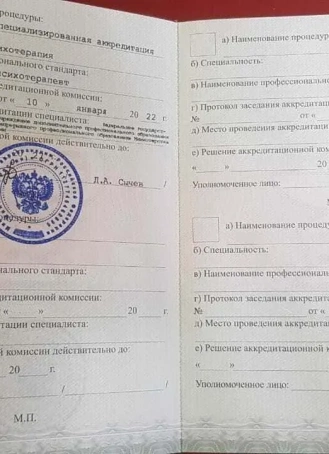 роцедуры:
пециализированная аккредитация
сихотерапия
ионального стандарта:
сихотерапевт
едитационной комиссии:
от « 10 » января 20 22 г.
дитации специалиста:
ной комиссии действительно до:
Л.А. Сычен /
оцедуры:
нального стандарта:
дитационной комиссии:
« » 20 г.
тации специалиста:
й комиссии действительно до:
20 г.
/ /
М.П.
а) Наименование процедур
б) Специальность:
в) Наименование профессиональн
г) Протокол заседания аккредитац
№ от «
д) Место проведения аккредитац
е) Решение аккредитационной ком
« »
Уполномоченное лицо:
а) Наименование процеду
б) Специальность:
в) Наименование профессионал
г) Протокол заседания аккредита
№ от «
д) Место проведения аккредита
е) Решение аккредитационной к
« »
Уполномоченное лицо: